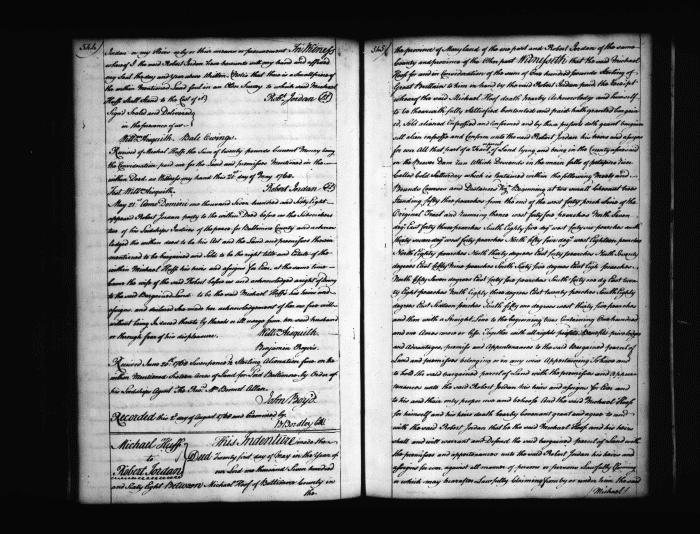 344
Jordan or my Heirs only or their means or procurement In Witness
whereof I the said Robert Jordan have hereunto sett my hand and affixed
my Seal the day and year above written
the within Mentioned Land
Huff shall stand to the Cost of it
Robt. Jordan
Signed Sealed and Delivered
in the presence of us
Willm Asquith. Bale Owings.
Received of Michael Huff the Sum of twenty pounds Current Money being
the Consideration paid me for the Land and premisses Mentioned in the
within Deed as Witness my hand this 21st day of May 1768
Test Willm Asquith Robert Jordan
May 21st Anno Domini one thousand Seven hundred and Sixty Eight
appeared Robert Jordan party to the within Deed before us the Subscribers
two of his Lordships Justices of the peace for Baltimore County and acknow-
ledged the within deed to be his Act and the Land and premisses therein
mentioned to be bargained and Sold to be the right title and Estate of the
within Michael Huff his heirs and assigns for Ever, at the same time
came the wife of the said Robert before us and acknowledged
to the said Bargained Land to be the said Michael Huffs his heirs and
assigns and declared she made her acknowledgement of her own free will
without being Induced thereto by threats or ill usage from her said husband
or through fear of his displeasure.
Willm Asquith
Benjamin Rogers.
Received June 20th 1768 Sterling Alienation fine on the
within Mentioned Sixteen Acres of Land for Baltimore by Order of
his Lordships Agent The Revd. Mr Bennet Allen
John Boyd
Recorded this 2d day of August 1768 and Examined by
B Bordley Clk
Michael Huff
to
Robert Jordan
Deed
This Indenture made the
Twenty first day of May in the Year of
our Lord one thousand Seven hundred
and Sixty Eight Between Michael Huff of Baltimore County in
the
345
the province of Maryland of the one part and Robert Jordan of the same
County and province of the Other part Witnesseth that the said Michael
Huff for and in Consideration of the sum of One hundred pounds Sterling of
Great Brittain to him in hand by the said Robert Jordan paid the Receipt
whereof the said Michael Huff doth hereby Acknowledge and himself
to be therewith fully satisfied contented and paid hath granted bargain-
ed, Sold aliened Enfeoffed and Confirmed and by these presents doth grant bargain
sell alien enfeoff and Confirm unto the said Robert Jordan his heirs and assigns
for ever all that part of Tract of Land lying and being in the County aforesaid
on the Beaver Dam run Which Descends in the main falls of patapsco River
Called Cold Saturday which is contained within the following Meets and
Bounds Courses and Distances Vizt. Beginning at two small bounded trees
standing fifty three perches from the end of the west forty perch line of the
Original Tract and running thence west forty five perches North Seven
degs East forty three perches South Eighty five degs west forty six perches south
thirty seven degs west forty perches North fifty five degs west Eighteen perches
North Eighty perches North thirty degrees East forty perches North Seventy
degrees East fifty nine perches South forty five degrees East Eight perches
North fifty Seven degrees East forty five perches South forty six degs East twen-
ty Eight perches North Eighty three degrees East twenty perches South Eighty
degrees East Sixteen perches South fifty six degrees west thirty five perches
and then with a Straight Line to the beginning tree Containing One hundred
and six Acres more or less. Together with all rights profits Benefits priviledges
and Advantages, premises and Appurtenances to the said Bargained parcel of
Land and premisses belonging or in any wise Appertaining To Have and
to hold the said bargained parcel of Land with the premisses and appur-
tenances unto the said Robert Jordan his heirs and assigns for Ever and
to his and their only proper use and behoof And the said Michael Huff
for himself and his heirs doth hereby Covenant grant and agree to and
with the said Robert Jordan that he the said Michael Huff and his heirs
shall and will warrant and Defend the said bargained parcel of Land with
the premisses and appurtenances unto the said Robert Jordan his heirs and
assigns for ever against all manner of persons or persons Lawfully Claiming
or which may hereafter Lawfully Claim by or under him the said
Michael